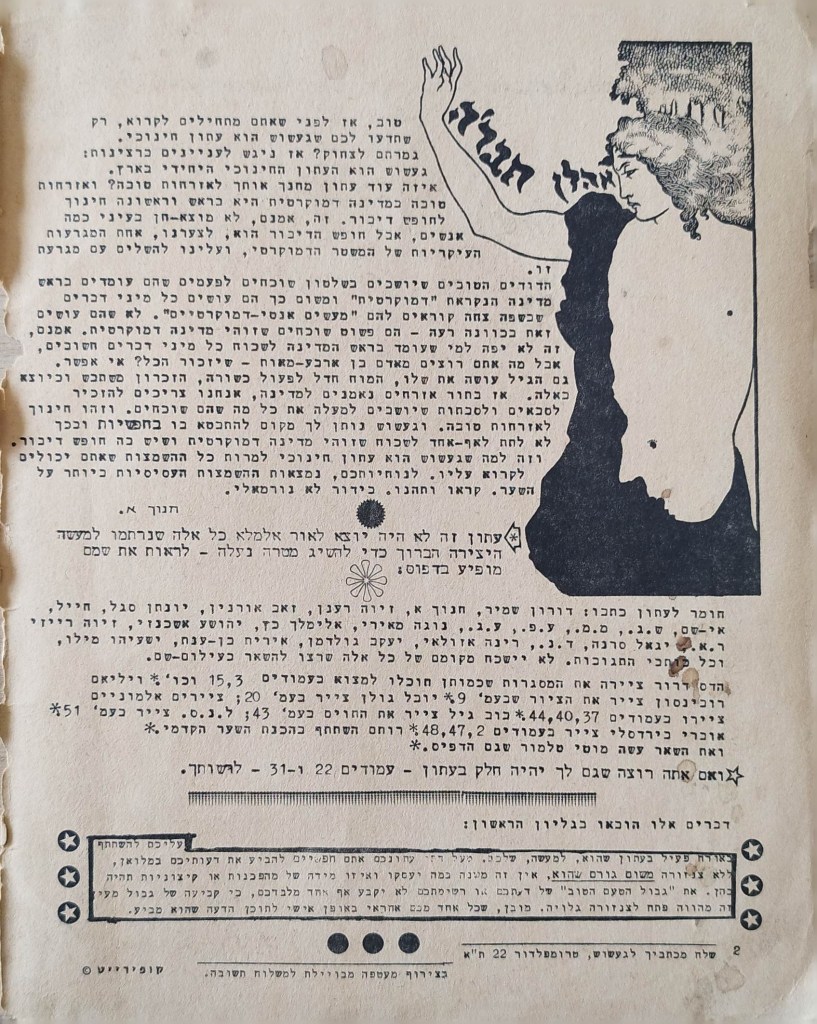 אהלן חבר'ה
טוב, אז לפני שאתם מתחילים לקרוא, רק
שתדעו לכם שגעשוש הוא עתון חינוכי.
גמרתם לצחוק? אז ניגש לעניינים ברצינות:
געשוש הוא העתון החינוכי היחידי בארץ.
איזה עוד עתון מחנך אותך לאזרחות טובה? ואזרחות
טובה במדינה דמוקרטית היא בראש וראשונה חינוך
לחופש דיבור. זה, אמנם, לא מוצא-חן בעיני כמה
אנשים, אבל חופש הדיבור הוא, לצערנו, אחת המגרעות
העיקריות של המשטר הדמוקרטי, ועלינו להשלים עם מגרעת
זו.
הדודים הטובים שיושבים בשלטון שוכחים לפעמים שהם עומדים בראש
מדינה הנקראת "דמוקרטית" ומשום כך הם עושים כל מיני דברים
שבשפה צחה קוראים להם "מעשים אנטי-דמוקרטיים". לא שהם עושים
זאת בכוונה רעה - הם פשוט שוכחים שזוהי מדינה דמוקרטית. אמנם,
זה לא יפה למי שעומד בראש המדינה לשכוח כל מיני דברים חשובים,
אבל מה אתם רוצים מאדם בן ארבע-מאות - שיזכור הכל? אי אפשר.
גם הגיל עושה את שלו, המוח חדל לפעול כשורה, הזכרון משתבש וכיוצא
באלה. אז בתור אזרחים נאמנים למדינה, אנחנו צריכים להזכיר
לסבאים ולסבתות שיושבים למעלה את כל מה שהם שוכחים. וזהו חינוך
לאזרחות טובה. וגעשוש נותן לך מקום להתבטא בו בחפשיות ובכך
לא לתת לאף-אחד לשכוח שזוהי מדינה דמוקרטית ושיש בה חופש דיבור.
וזה למה שגעשוש הוא עתון חינוכי למרות כל ההשמצות שאתם יכולים
לקרוא עליו. לנוחיותכם, נמצאות ההשמצות העסיסיות ביותר על
השער. קראו ותהנו. בידור לא נורמאלי.
חנוך א.
עתון זה לא היה יוצא לאור אלמלא כל אלה שנרתמו למעשה
היצירה הברוך כדי להשיג מטרה נעלה - לראות את שמם
מופיע בדפוס:
חומר לעתון כתבו: דורון שמיר, חנוך א, זיוה רענן, זאב אורנין, יונתן סגל, חייל,
אי-שם, ש.ג., מ.מ., ע.פ., ע.ג., נוגה מאירי, אלימלך כץ, יהושע אשכנזי, זיוה רייזי
ר.א., יגאל סרנה, ד.נ., רינה אזולאי, יעקב גולדמן, אירית בן-ענת, ישעיהו מילו,
וכל כותבי התגובות. לא יישכח מקומם של כל אלה שרצו להשאר בעילום-שם.
הדס דרור ציירה את המסגרות שכמותן תוכלו למצוא בעמודים 15,3 וכו'.* ויליאם
רובינסון צייר את הציור שבעמ' 9.* יובל גולן צייר בעמ' 20; ציירים אלמוניים
ציירו בעמודים 44,40,37.* בוב גיל צייר את החוים בעמ' 43; ל.נ.ס. צייר בעמ' 51.*
אוברי בירדסלי צייר בעמודים 48,47,2.* רוחם השתתף בהכנת השער הקדמי.*
ואת השאר עשה מוטי טלמור שגם הדפיס.*
ואם אתה רוצה שגם לך יהיה חלק בעתון - עמודים 22 ו-31 - לרשותך.
דברים אלו הובאו בגליון הראשון:
עליכם להשתתף
באורח פעיל בעתון שהוא, למעשה, שלכם. מעל דפי עתונכם אתם חפשיים להביע את דעותיכם במלואן,
ללא צנזורה משום גורם שהוא, אין זה משנה במה יעסקו ואיזו מידה של מהפכנות או קיצוניות תהיה
בהן. את "גבול הטעם הטוב" של דעתכם או רשימתכם לא יקבע אף אחד מלבדכם, כי קביעה של גבול מעין
זה מהווה פתח לצנזורה גלויה. מובן, שכל אחד מכם אחראי באופן אישי לתוכן הדעה שהוא מביע.
שלח מכתביך לגעשוש, טרומפלדור 22 ת"א
2
בצירוף מעטפה מבויילת למשלוח תשובה.
קופירייט ©